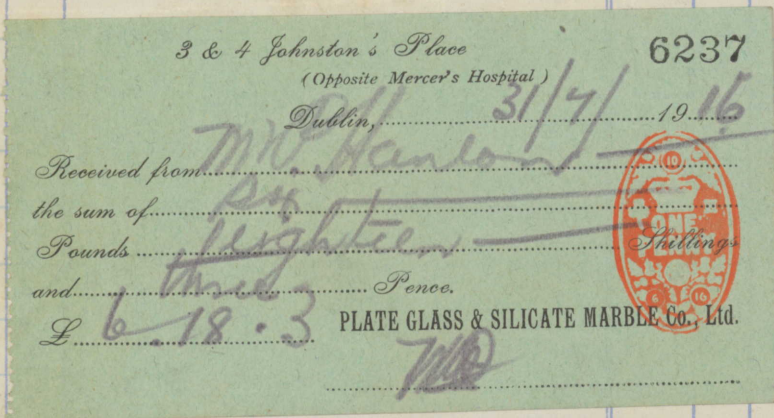 3 & 4 Johnston's Place 6237
(Opposite Mercer's Hospital)
Dublin, 31/7/ 19 16
Received from Mr P. Hanlon
the sum of Six
Pounds eighteen Shillings
and three Pence.
£ 6.18.3 PLATE GLASS & SILICATE MARBLE Co., Ltd.
10
ONE
PENNY
6 16